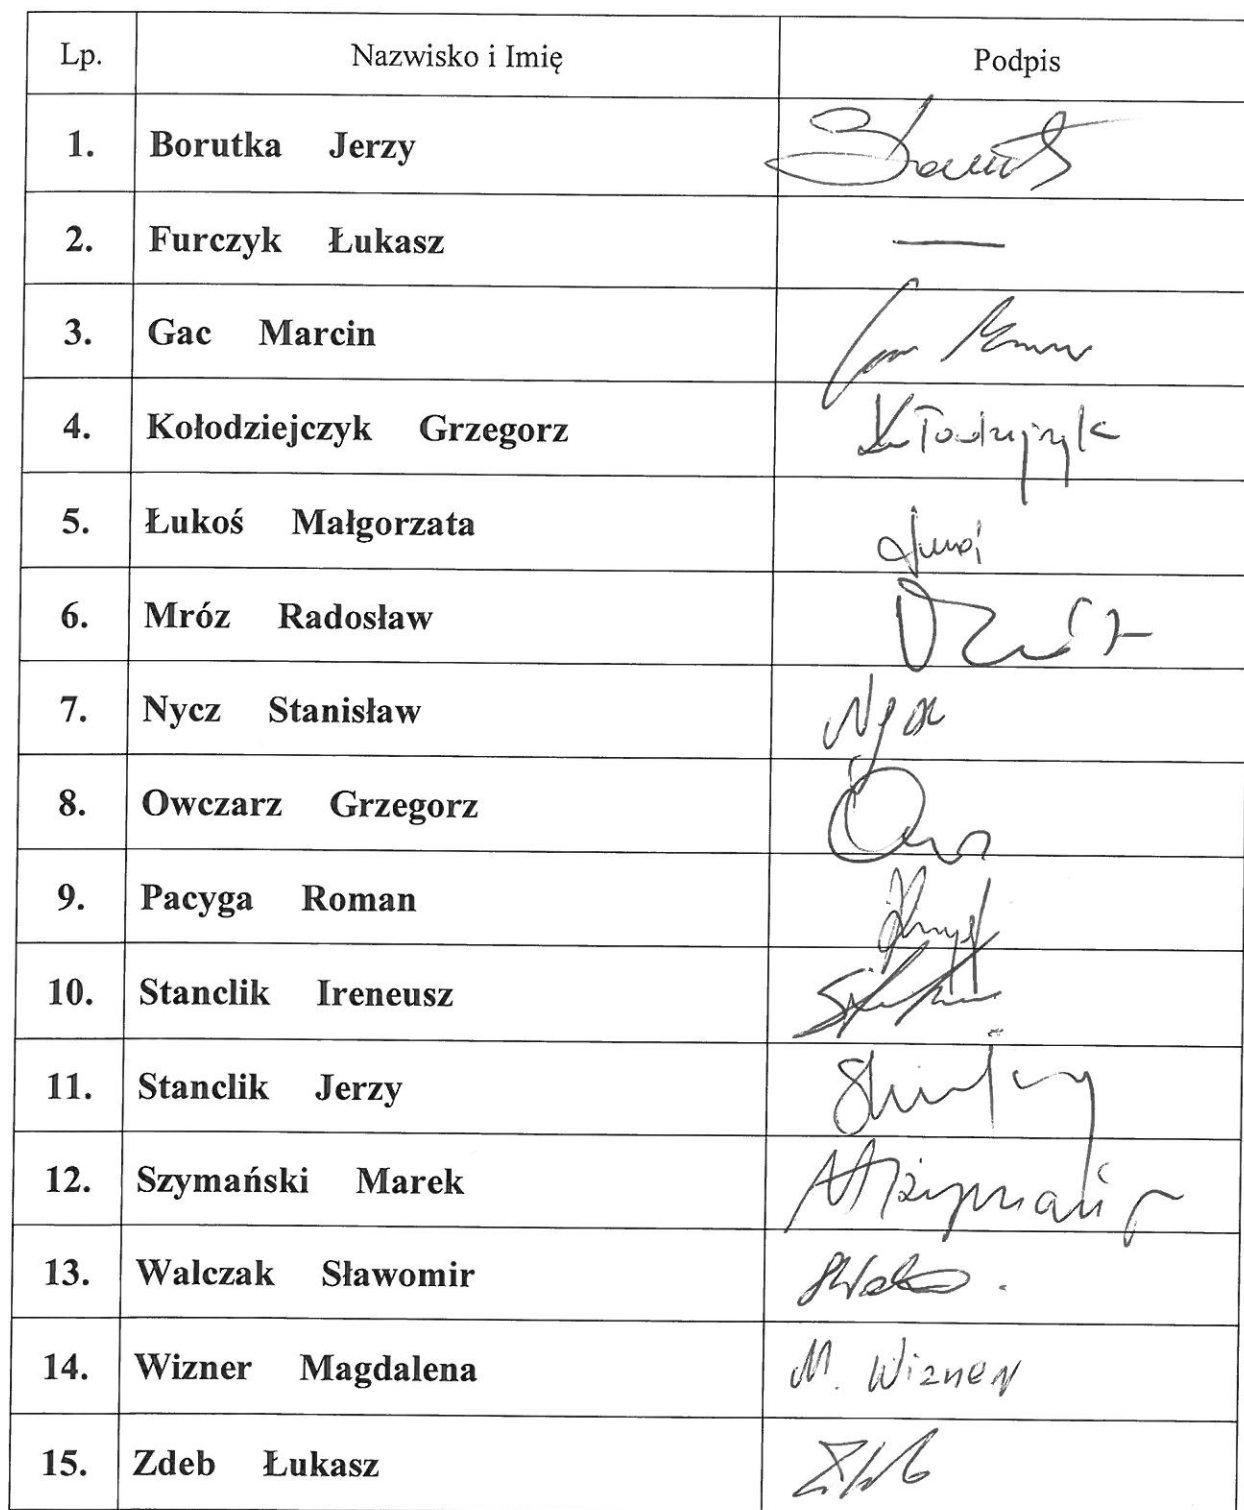 Lp. Nazwisko i Imię Podpis
1. Borutka Jerzy
2. Furczyk Łukasz —
3. Gac Marcin
4. Kołodziejczyk Grzegorz
5. Łukoś Małgorzata
6. Mróz Radosław
7. Nycz Stanisław
8. Owczarz Grzegorz
9. Pacyga Roman
10. Stanclik Ireneusz
11. Stanclik Jerzy
12. Szymański Marek
13. Walczak Sławomir
14. Wizner Magdalena M. Wizner
15. Zdeb Łukasz